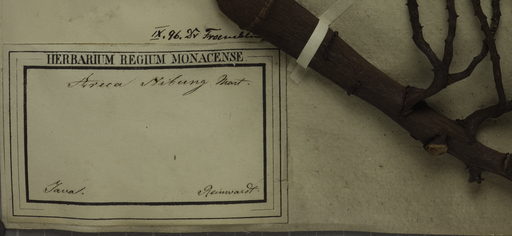 IX. 96. Dr
HERBARIUM REGIUM MONACENSE
Areca Nibung Mart.
Java. Reinwardt.